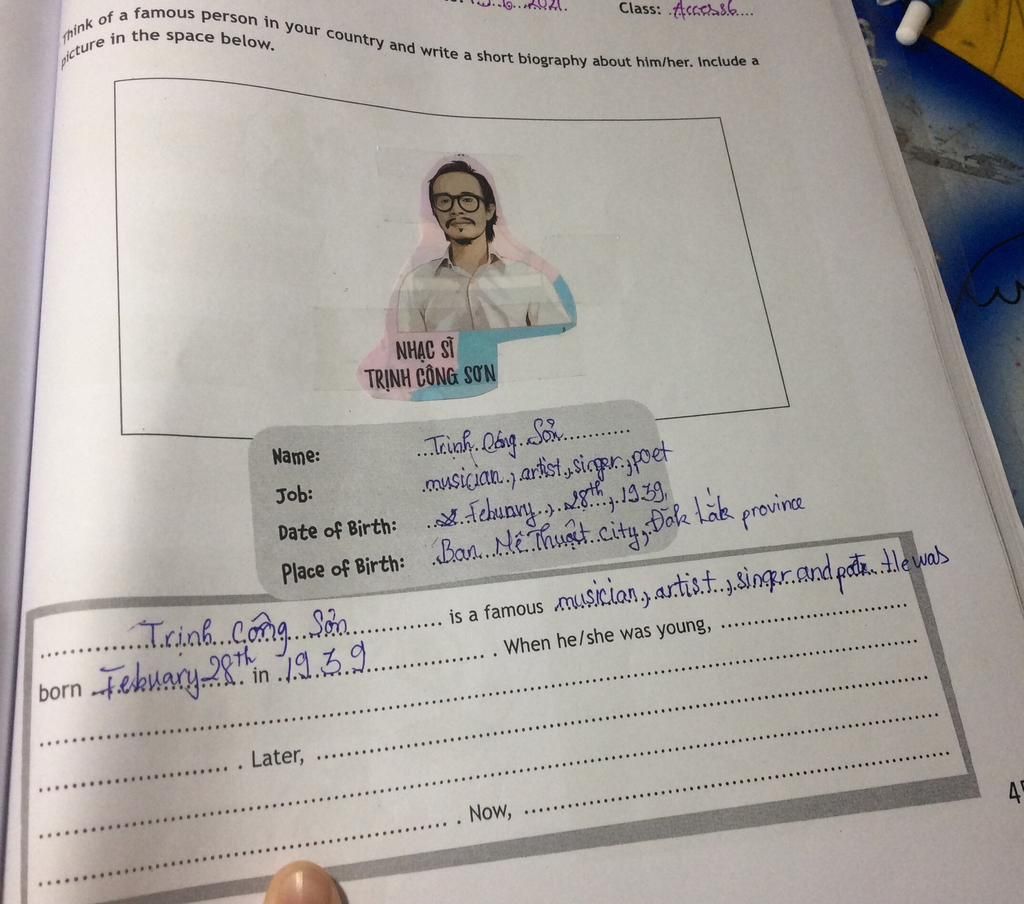 Class: Access6
Think of a famous person in your country and write a short biography about him/her. Include a
picture in the space below.
NHẠC SĨ
TRỊNH CÔNG SƠN
Name: Trinh Công Sơn
Job: musician, artist, singer, poet
Date of Birth: Febuary, 28th, 1939,
Place of Birth: Ban Mê Thuột city, Đăk Lăk province
Trinh Công Sơn is a famous musician, artist, singer and poet. He was
born Febuary 28th in 1939 . When he/she was young,
. Later,
. Now,